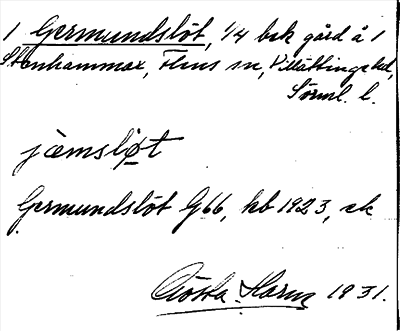 1 Germundslöt, 1/4 bsk gård å 1
Stenhammar, Flens sn, Villåttinge hd,
Sörml. l.
jæmsløt
Germundslöt G66, kb 1923, ek
Gösta Harn 1931.